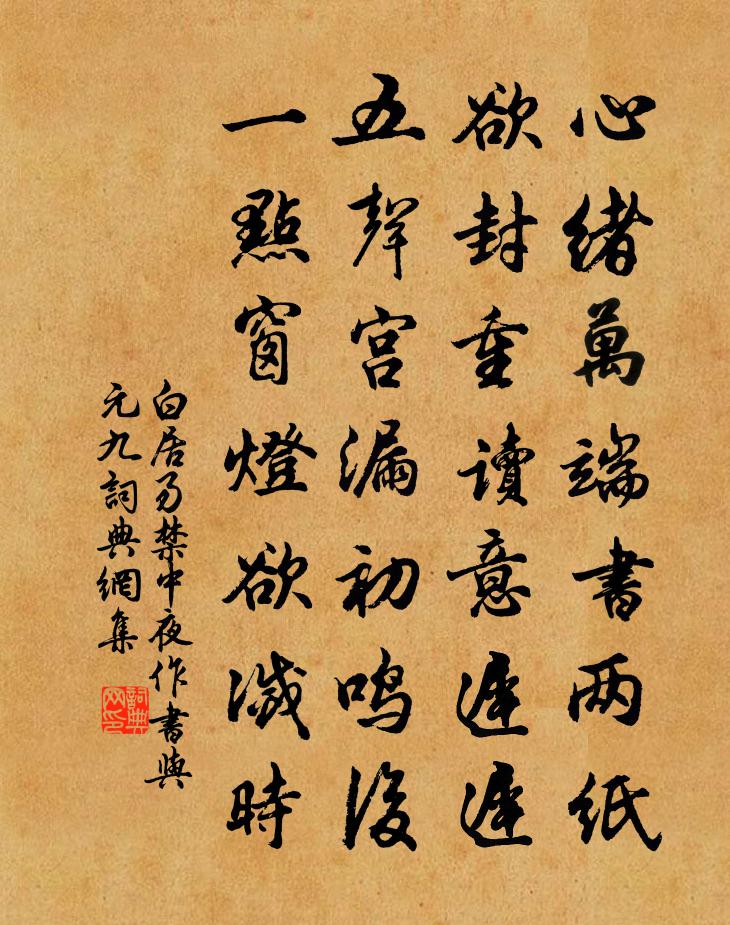 心緒萬端書两紙
欲封重讀意遲遲
五聲宫漏初鳴後
一點窗燈欲滅時
白居易禁中夜作書與
元九詞典網集
詞典网印